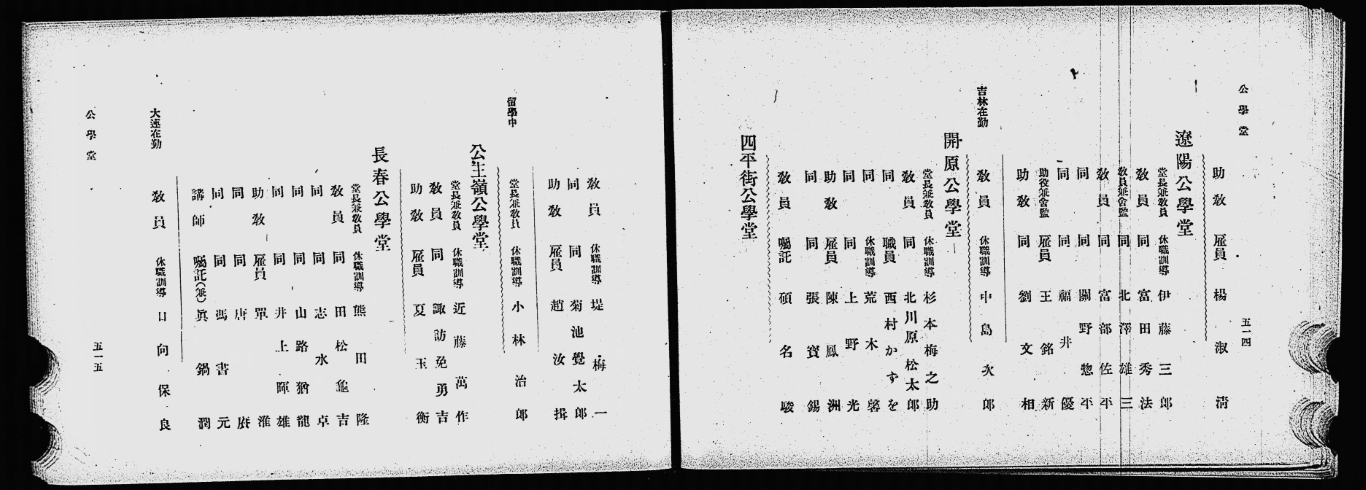 公學堂
五一四
助教 雇員 楊淑清
遼陽公學堂
堂長兼教員 休職訓導 伊藤三郎
教員 同 富田秀法
教員兼舍監 同 北澤雄三
教員 同 富部佐平
同 同 關野惣平
同 同 福井優
助役兼舍監 雇員 王銘新
助教 同 劉文相
吉林在勤 教員 休職訓導 中島次郎
開原公學堂
堂長兼教員 休職訓導 杉本梅之助
教員 同 北川原松太郎
同 職員 西村かずを
同 休職訓導 荒木馨
同 同 上野光
助教 雇員 陳鳳洲
同 同 張寶錫
教員 囑託 碩名駿
四平街公學堂
教員 休職訓導 堤梅一
同 同 菊池覺太郎
助教 雇員 趙汝揖
留學中 堂長兼教員 休職訓導 小林治郎
公主嶺公學堂
堂長兼教員 休職訓導 近藤萬作
教員 同 諏訪免勇吉
助教 雇員 夏玉衡
長春公學堂
堂長兼教員 休職訓導 熊田隆
教員 同 田松龜吉
同 同 志水卓
同 同 山路猶龍
同 同 井上暉雄
助教 雇員 單淮
同 同 唐
同 同 馮書元
講師 囑託(兼) 眞鍋潤
大連在勤 教員 休職訓導 日向保良
公學堂
五一五